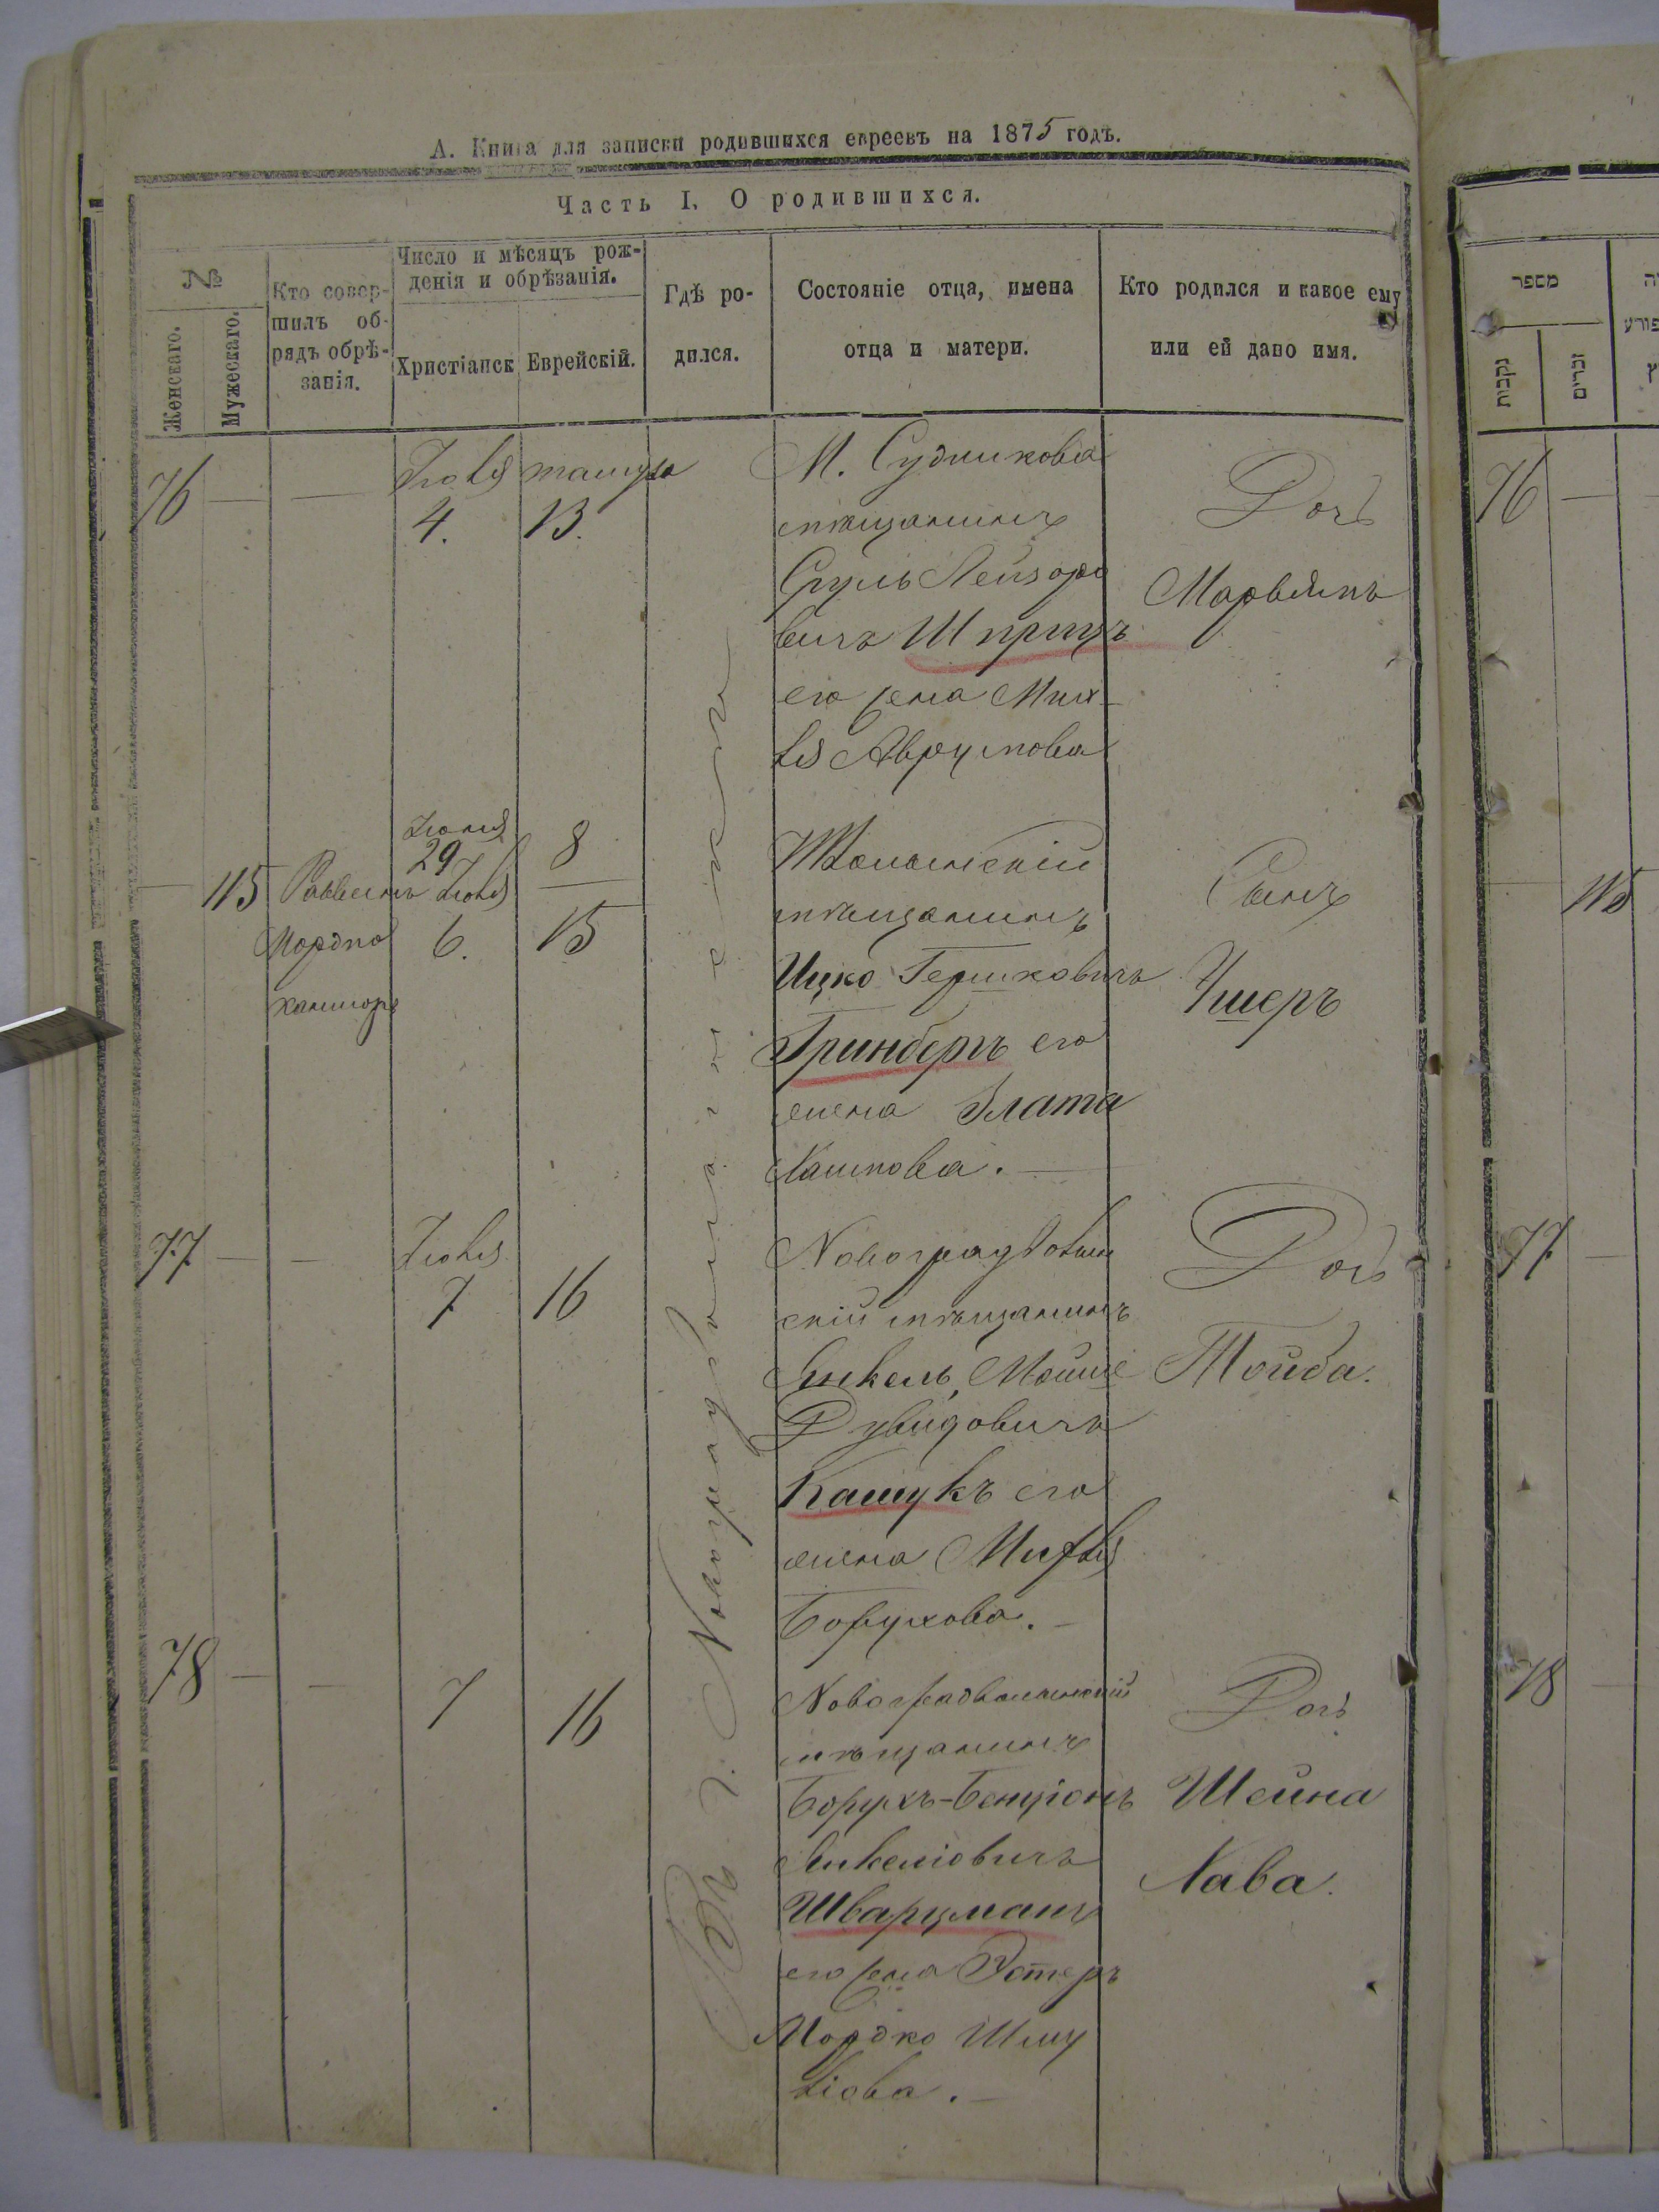 А. Книга для записки родившихся евреевъ на 1875 годъ.
Часть I. О родившихся.
№
Женскаго.
Мужескаго.
Кто совер-
шилъ об-
рядъ обрѣ-
занія.
Число и мѣсяцъ рож-
денія и обрѣзанія.
Христіанск
Еврейскій.
Гдѣ ро-
дился.
Состояніе отца, имена
отца и матери.
Кто родился и какое ему
или ей дано имя.
Въ г. Новоградволынске
76 — —
Іюля
4.
тамуза
13.
М. Судилкова
мѣщанинъ
Сруль Лейзоро
вичъ Шприцъ
его жена
Аврумова
Дочь
115
Раввинъ
Мордко
Іюня
29
Іюля
6.
8
15
Волынскій
мѣщанинъ
Ицко Гершковичъ
Гринберъ его
жена Злата
Хаимова. —
Сынъ
Ушеръ
77 — —
Іюля
7
16
Новоградволын
скій мѣщанинъ
Янкель, Мойше
Дувидовичъ
Кашукъ его
жена
Борухова. —
Дочь
Тойба.
78 — —
7
16
Новоградволынскій
мѣщанинъ
Борухъ-Бенціонъ
Янкеліовичъ
Шварцманъ
его жена Эстеръ
Мордко Шму
ліова. —
Дочь
Шейна
Хава.
מספר
נקבות
זכרים
76 —
115
77 —
78 —